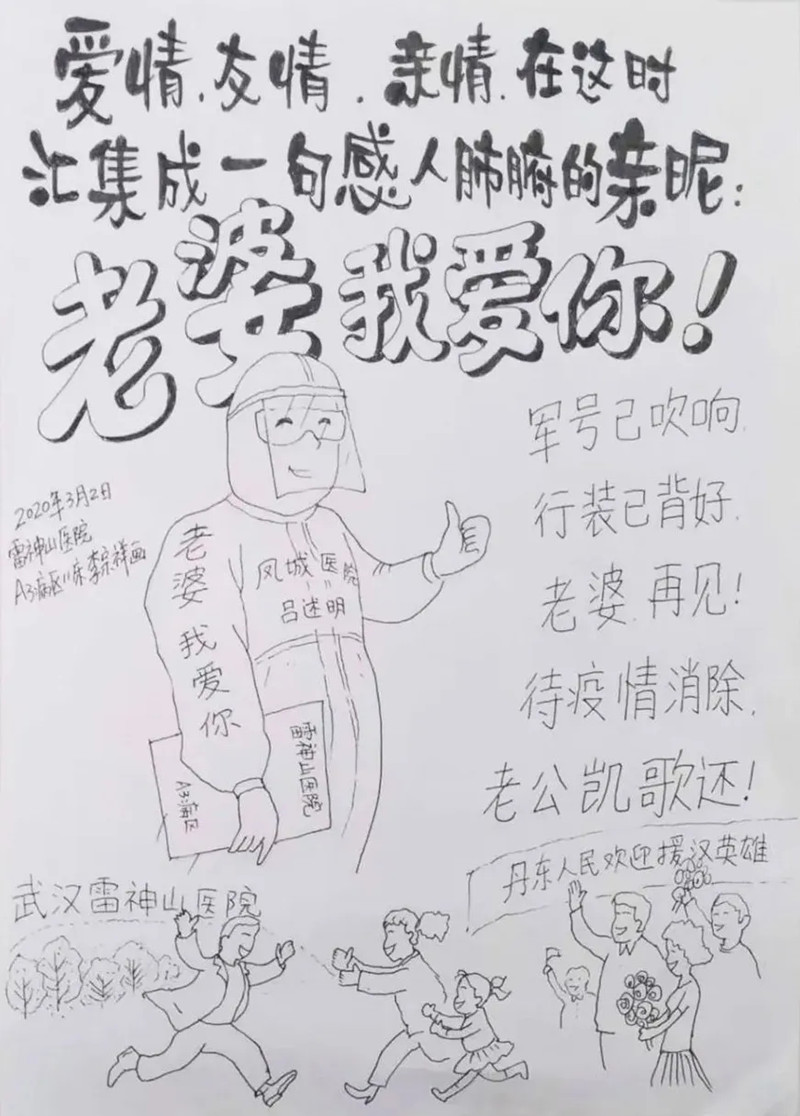 爱情、友情、亲情、在这时
汇集成一句感人肺腑的亲昵:
老婆我爱你!
军号已吹响,
行装已背好,
老婆,再见!
待疫情消除,
老公凯歌还!
2020年3月2日
雷神山医院
A3病区11床李宗祥画
凤城医院
吕述明
老婆我爱你
雷神山医院
A3病区
武汉雷神山医院
丹东人民欢迎援汉英雄